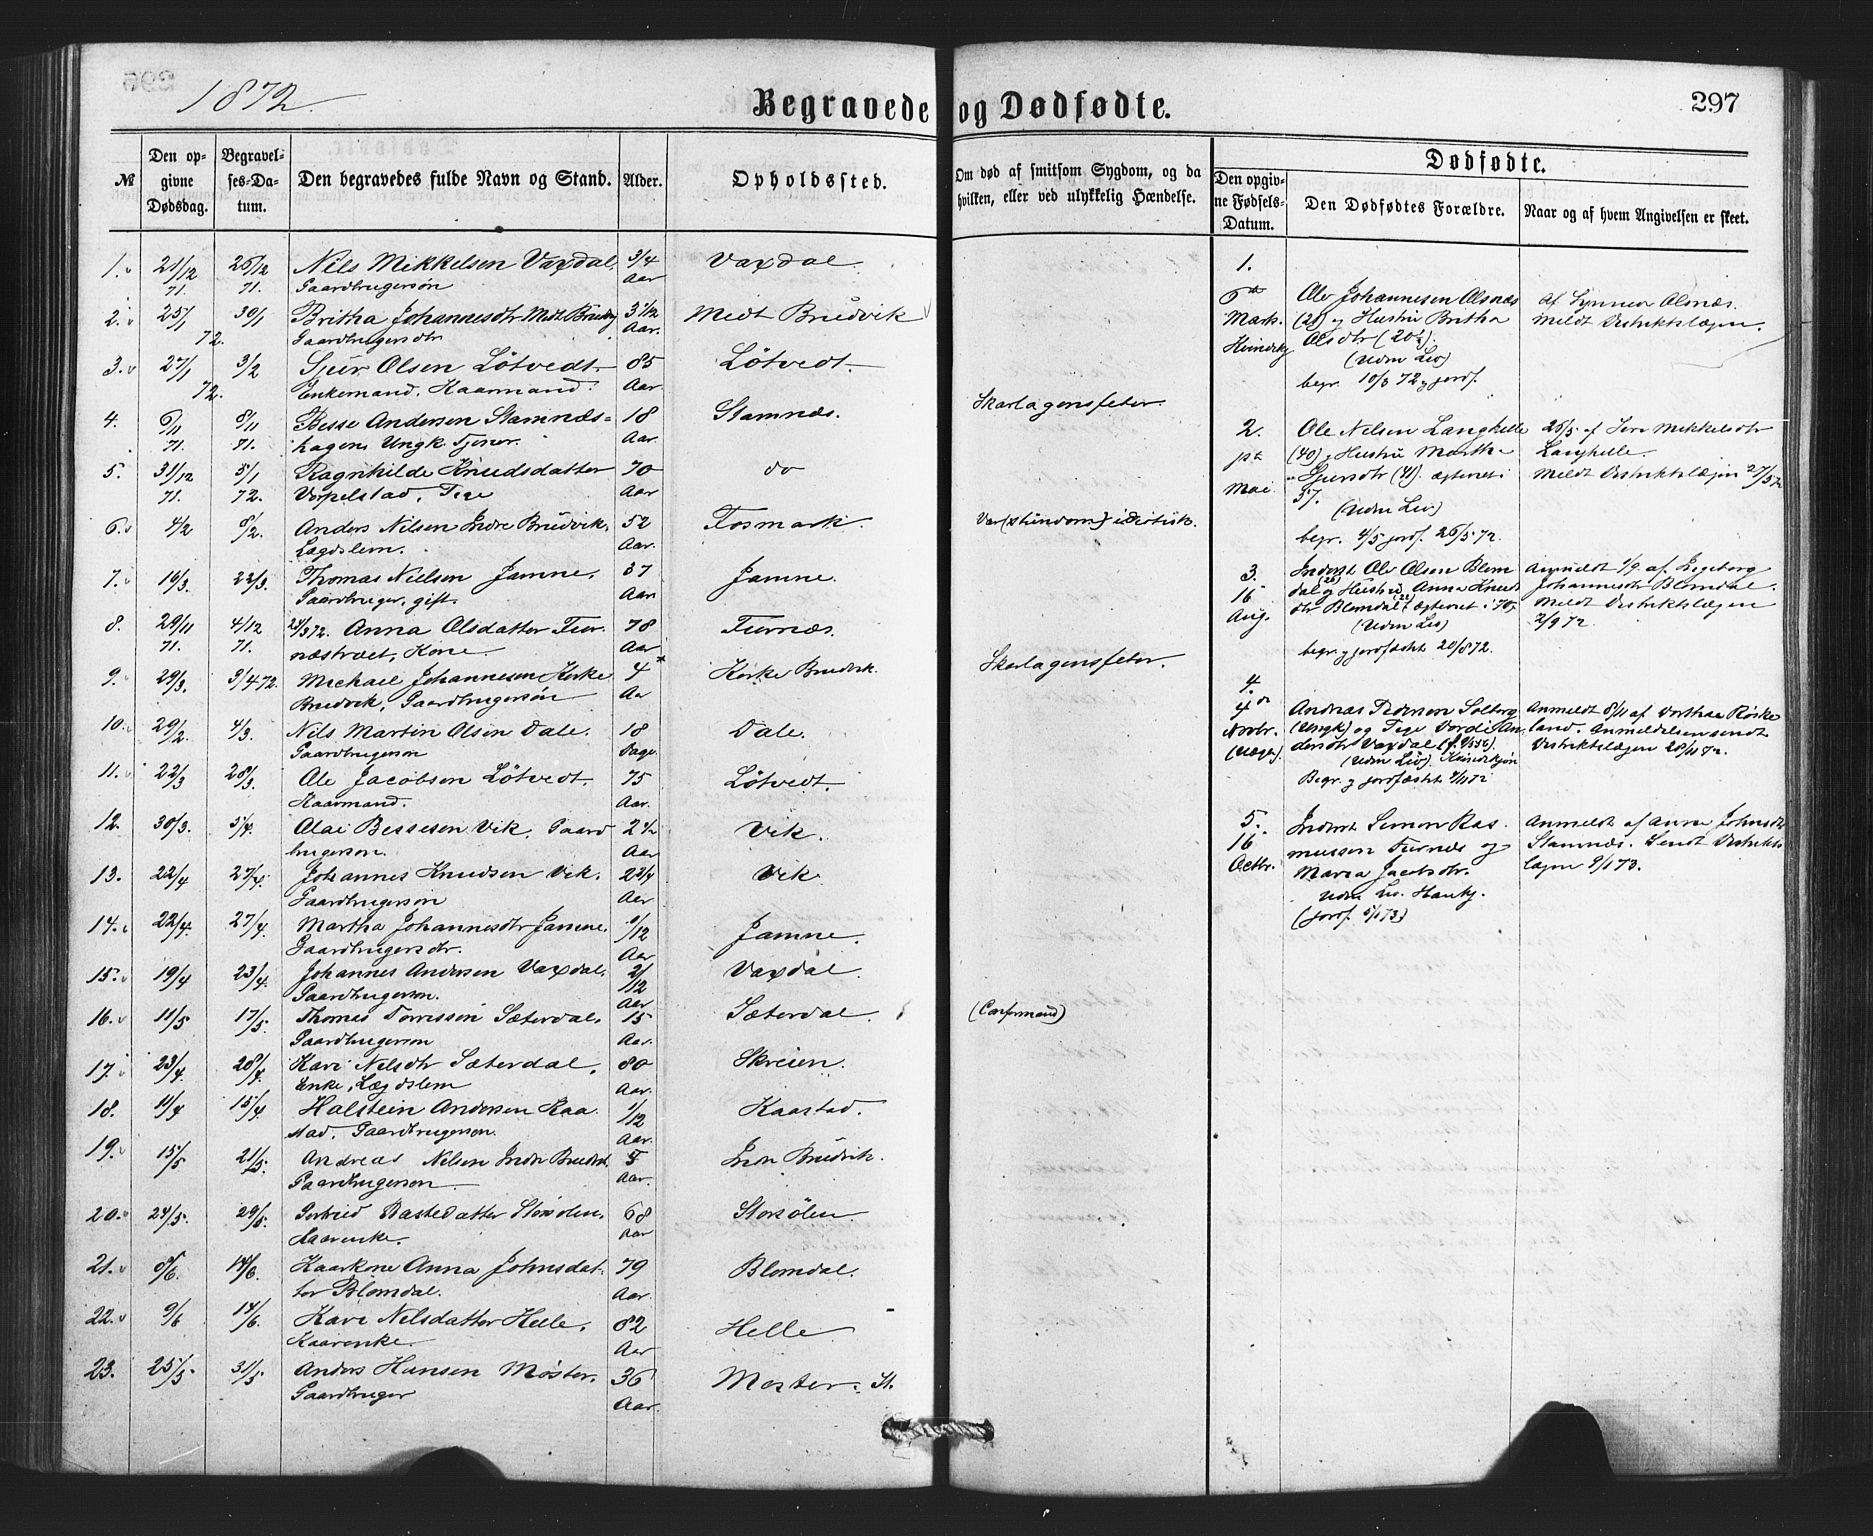 1872.
Begravede og Dødfødte.
297
№
Den opgivne Dødsdag.
Begravelses-Datum.
Den begravedes fulde Navn og Stand.
Alder.
Opholdssted.
Om død af smitsom Sygdom, og da hvilken, eller ved ulykkelig Hændelse.
Dødfødte.
Den opgivne Fødsels-Datum.
Den Dødfødtes Forældre.
Naar og af hvem Angivelsen er skeet.
1. 21/12 26/12 Nils Mikkelsen Vaxdal. 3/4 Vaxdal.
71. 71. Gaardbrugersøn Aar
2. 25/1 30/1 Britha Johannesdtr Midt Brudv 3 1/12 Midt Brudvik
72. Gaardbrugersdtr Aar.
3. 27/1 3/2 Sjur Olsen Lötvedt. 85 Lötvedt.
72. Enkemand, Kaarmand. Aar.
4. 6/11 8/11 Besse Andersen Stamnæs- 18 Stamnæs. Skarlagensfeber.
71. 71. hagen, Ungk. Tjener. Aar.
5. 31/12 5/1 Ragnhilde Knudsdatter 70 do
71. 72. Vorpelstad, Pige Aar
6. 4/2 8/2. Anders Nilsen Indre Brudvik. 52 Fosmark. Var (stundom) idiotisk.
Lægdslem. Aar.
7. 16/3. 22/3. Thomas Nielsen Jamne. 37 Jamne.
Gaardbruger, gift. Aar.
8. 29/11 4/12 Anna Olsdatter Fur- 78 Furnæs.
71. 71. næstræet, Kone. Aar
9. 29/3. 3/4 72. Michael Johannesen Kirke 4 Kirke Brudvik. Skarlagensfeber.
Brudvik, Gaardbrugersøn Aar
10. 29/2. 4/3. Nils Martin Olsen Dale. 18 Dale.
Gaardbrugerson Dage.
11. 22/3 28/3. Ole Jacobsen Lötvedt. 75 Lötvedt.
Kaarmand. Aar.
12. 30/3. 5/4. Olai Bessesen Vik. Gaard 2 1/2 Vik.
brugerson. Aar
13. 22/4 27/4. Johannes Knudsen Vik. 2 3/4 Vik.
Gaardbrugerson Aar
14. 22/4. 27/4. Martha Johannesdtr Jamne. /12 Jamne.
Gaardbrugersdtr. Aar
15. 19/4 23/4. Johannes Andersen Vaxdal. 2/12 Vaxdal.
Gaardbrugerson. Aar
16. 11/5 17/5. Thomes Torressön Sæterdal. 15 Sæterdal. (Confirmand)
Gaardbrugerson Aar.
17. 23/4. 28/4. Kari Nilsdtr Sæterdal. 80 Skreien.
Enke, Lægdslem Aar.
18. 11/4 15/4. Halstein Andersen Kaa 1/12 Kaastad.
stad. Gaardbrugerson. Aar.
19. 15/5 21/5. Andreas Nilsen Indr Brudvik 5 Indr Brudvik.
Gaardbrugerson Aar.
20. 24/5. 29/5. Gertrud Bastedatter Storsölen. 68 Storsölen.
Kaarenke. Aar
21. 8/6. 14/6. Kaarkone Anna Johnsdat- 79 Blomdal.
ter Blomdal. Aar.
22. 9/6 14/6. Kari Nilsdatter Helle. 82 Helle
Kaarenke. Aar
23. 25/5 31/5 Anders Hansen Möster. 36 Moster. St.
Gaardbruger Aar.
1.
6te Ole Johannesen Olsnæs Af Synneva Olsnæs.
Marts. (28) og Hustru Britha Meldt Distriktslægen.
Olsdtr (20 1/2).
(uden Liv)
begr. 10/3 72 og jordf.
2. Ole Nilsen Langhelle 26/5 af Mikkelsdtr
(40) og Hustru Martha Langhelle.
Mai Sjursdtr (41). ægteviet i Meldt Distriktslægen 27/5 72
57.
(uden Liv)
begr. 4/5 jordf. 26/5 72.
3. Inderst Ole Olsen Blom Anmeldt 1/9 af Ingeborg
16 dal og Hustru Anna Knuds Johannesdtr Blomdal.
Aug. dtr Blomdal, ægteviet i 70. Meldt Distriktslægen
(uden Liv) 2/9 72.
begr. og jordfæstet 20/8 72.
4.
4de Andreas Pedersen Solberg Anmeldt 8/11 af Dorthea Röske
Novbr. (Ungk) og Pige Vordi An- land. Anmeldelsen sendt
(Uægte). dersdtr Vaxdal. Distriktslægen 28/11 72.
(uden Liv). Kvindekjön
Begr. og jordfæstet 9/11 72
5. Inderst Simon Ras Anmeldt af Anna Johnsdtr
16 mussen Furnæs og Stamnæs. Sendt Distrikts
Octbr. Maria Jacobsdtr. lægen 9/1 73.
uden Liv. Hankj.
(jordf. 5/1 73)